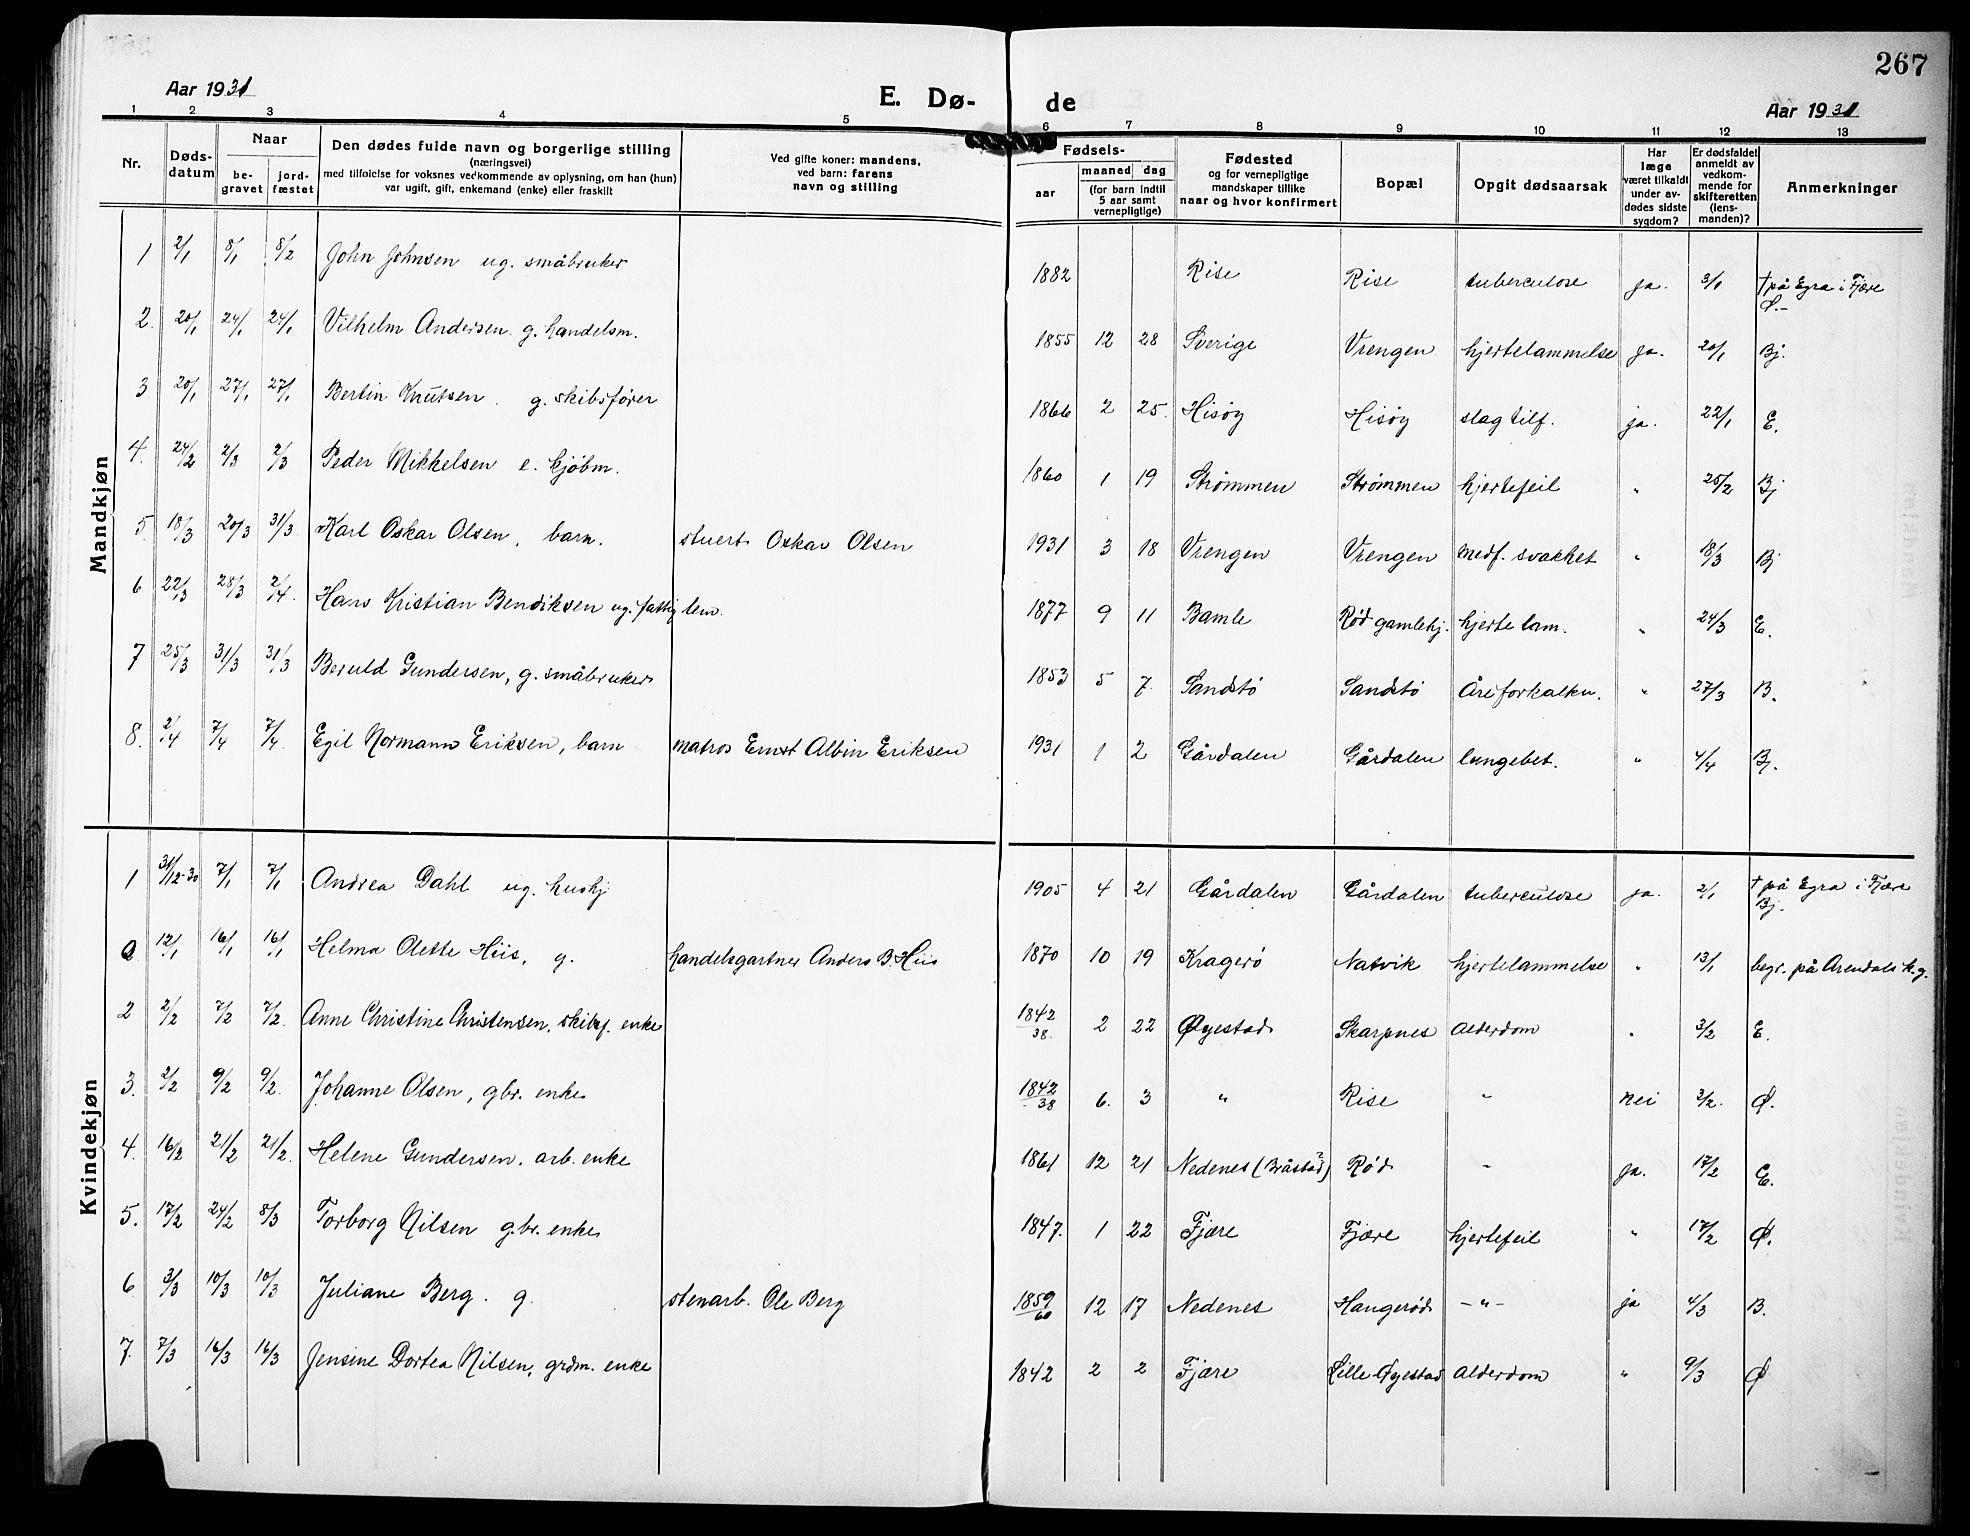 267
Aar 1931
E. Dø- de
Aar 1931
1 2 3 4 5 6 7 8 9 10 11 12 13
Nr.
Døds-
datum
Naar
be-
gravet
jord-
fæstet
Den dødes fulde navn og borgerlige stilling
(næringsvei)
med tilføielse for voksnes vedkommende av oplysning, om han (hun)
var ugift, gift, enkemand (enke) eller fraskilt
Ved gifte koner: mandens,
ved barn: farens
navn og stilling
Fødsels-
aar
maaned dag
(for barn indtil
5 aar samt
vernepligtige)
Fødested
og for vernepligtige
mandskaper tillike
naar og hvor konfirmert
Bopæl
Opgit dødsaarsak
Har
læge
været tilkaldt
under av-
dødes sidste
sygdom?
Er dødsfaldet
anmeldt av
vedkom-
mende for
skifteretten
(lens-
manden)?
Anmerkninger
Mandkjøn
1 2/1 8/1 8/2 John Johnsen ug. småbruker 1882 Rise Rise tuberculose ja. 3/1 † på Egra i Fjære
Ø.-
2. 20/1 24/1 24/1 Vilhelm Andersen g. handelsm. 1855 12 28 Sverige Vrengen hjertelammelse ja. 20/1 Bj.
3 20/1 27/1 27/1 Bertin Knutsen g. skibsfører 1866 2 25. Hisøy Hisøy slagtilf. ja. 22/1 E.
4. 24/2 2/3 2/3 Peder Mikkelsen e. kjøbm. 1860 1 19 Strømmen Strømmen hjertefeil " 25/2 Bj
5. 18/3 20/3 31/3 Karl Oskar Olsen, barn. stuert Oskar Olsen 1931 3 18 Vrengen Vrengen medf. svakhet " 18/3 Bj
6 22/3 28/3 2/4. Hans Kristian Bendiksen ug. fattiglem. 1877 9 11 Bamle Rød gamlehj. hjertelam. " 24/3 E.
7 25/3 31/3 31/3 Beruld Gundersen, g. småbruker 1853 5 7. Sandstø Sandstø Åreforkalkn. " 27/3 B.
8. 2/4 7/4 7/4. Egil Normann Eriksen, barn matros Ernst Albin Eriksen 1931 1 2 Gårdalen Gårdalen lungebet. " 4/4 Bj.
Kvindekjøn
1 31/12-30 7/1 7/1 Andrea Dahl ug. hushj 1905 4 21 Gårdalen Gårdalen tuberculose ja. 2/1 † på Egra i Fjære
Bj.
0 12/1 16/1 16/1 Helma Olette Hiis, g. handelsgartner Anders B. Hiis 1870 10 19 Kragerø Natvik hjertelammelse " 13/1 begr. på Arendals k.g.
2 2/2 7/2 7/2. Anne Christine Christensen, skibsf. enke 1842/38. 2 22 Øyestad Skarpnes Alderdom " 3/2 E.
3. 2/2 9/2 9/2. Johanne Olsen, gbr. enke 1842/38 6. 3 " Rise " nei 3/2. Ø.
4. 16/2 21/2 21/2. Helene Gundersen. arb. enke 1861 12 21 Nedenes (Bråstad?) Rød " ja. 17/2 E.
5. 17/2 24/2 8/3 Torborg Nilsen gbr. enke 1847. 1 22 Fjære Fjære hjertefeil " 17/2 Ø.
6 3/3 10/3 10/3 Juliane Berg. g. stenarb. Ole Berg 1859/60 12 17 Nedenes Haugerød -"- ja 4/3 B.
7. 7/3 16/3 16/3 Jensine Dortea Nilsen, grdm. enke 1842 2 2 Fjære Lille Øyestad Alderdom " 9/3 Ø